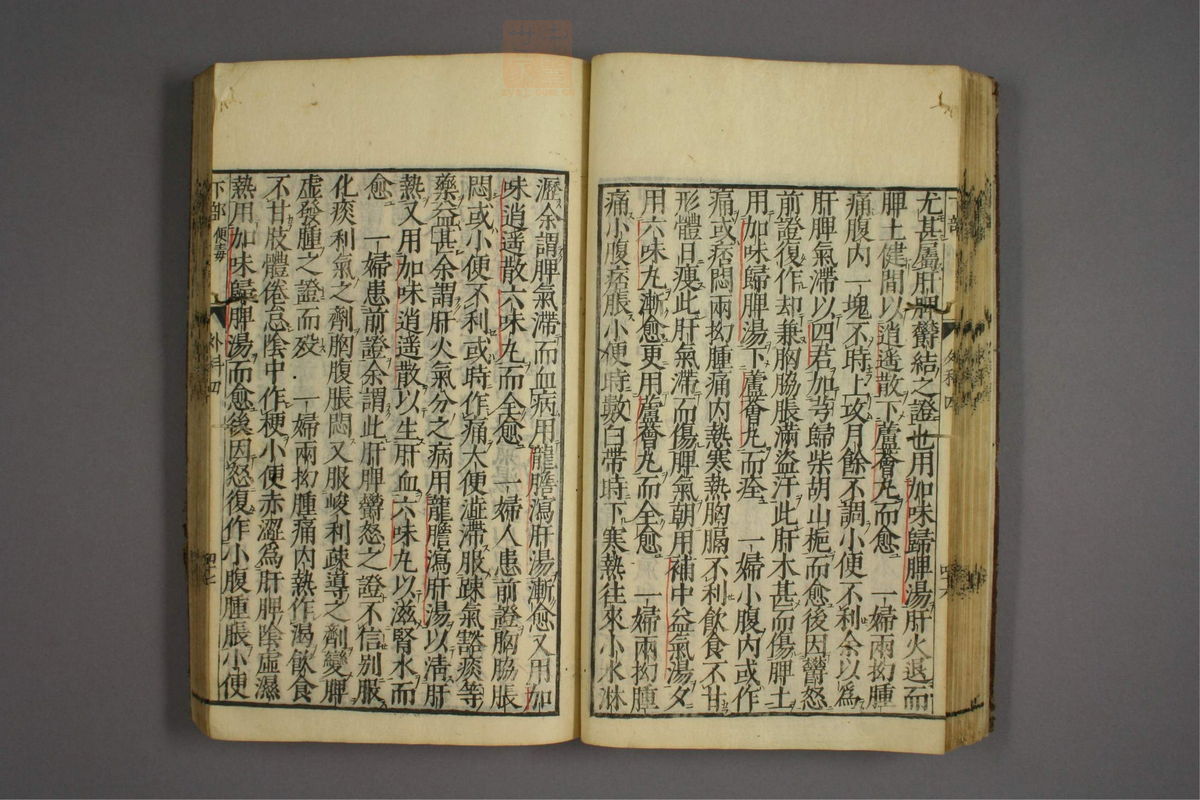 尤甚屬肝脾欝結之證也用加味歸脾湯肝火退而
脾土健間以逍遙散下蘆薈丸而愈 一婦兩拗腫
痛腹内一塊不時上攻月餘不調小便不利余以爲
肝脾氣滯以四君加芎歸柴胡山梔而愈後因欝怒
前證復作却兼胸脇脹滿盜汗此肝木甚而傷脾土
用加味歸脾湯下蘆薈丸而痊 一婦小腹内或作
痛或痞悶兩拗腫痛内熱寒熱胸膈不利飲食不甘
形體日瘦此肝氣滯而傷脾氣朝用補中益氣湯夕
用六味丸漸愈更用蘆薈丸而全愈 一婦兩拗腫
痛小腹痞脹小便時數白帶時下寒熱往來小水淋
瀝余謂脾氣滯而血病用龍膽瀉肝湯漸愈又用加
味逍遙散六味丸而全愈 一婦人患前證胸脇脹
悶或小便不利或時作痛大便澁滯服疎氣豁痰等
藥益甚余謂肝火氣分之病用龍膽瀉肝湯以清肝
熱又用加味逍遙散以生肝血六味丸以滋腎水而
愈 一婦患前證余謂此肝脾欝怒之證不信別服
化痰利氣之劑胸腹脹悶又服峻利疎導之劑變脾
虛發腫之證而歿 一婦兩拗腫痛内熱作渴飲食
不甘肢體倦怠陰中作梗小便赤澀爲肝脾陰虛濕
熱用加味歸脾湯而愈後因怒復作小腹腫脹小便
下部 便毒 外科四 四十七